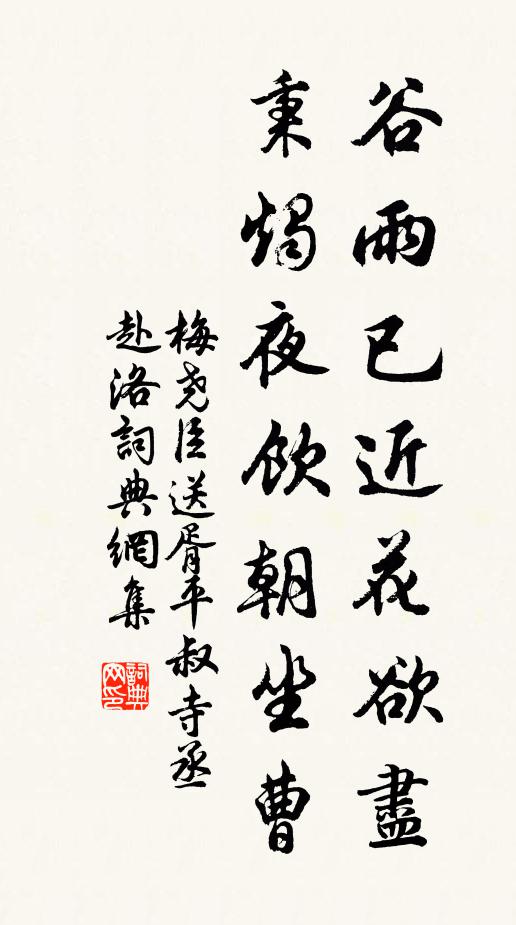 谷雨已近花欲盡
秉燭夜飲朝坐曹
梅尧臣送胥平叔寺丞
赴洛詞典網集
詞典
网印